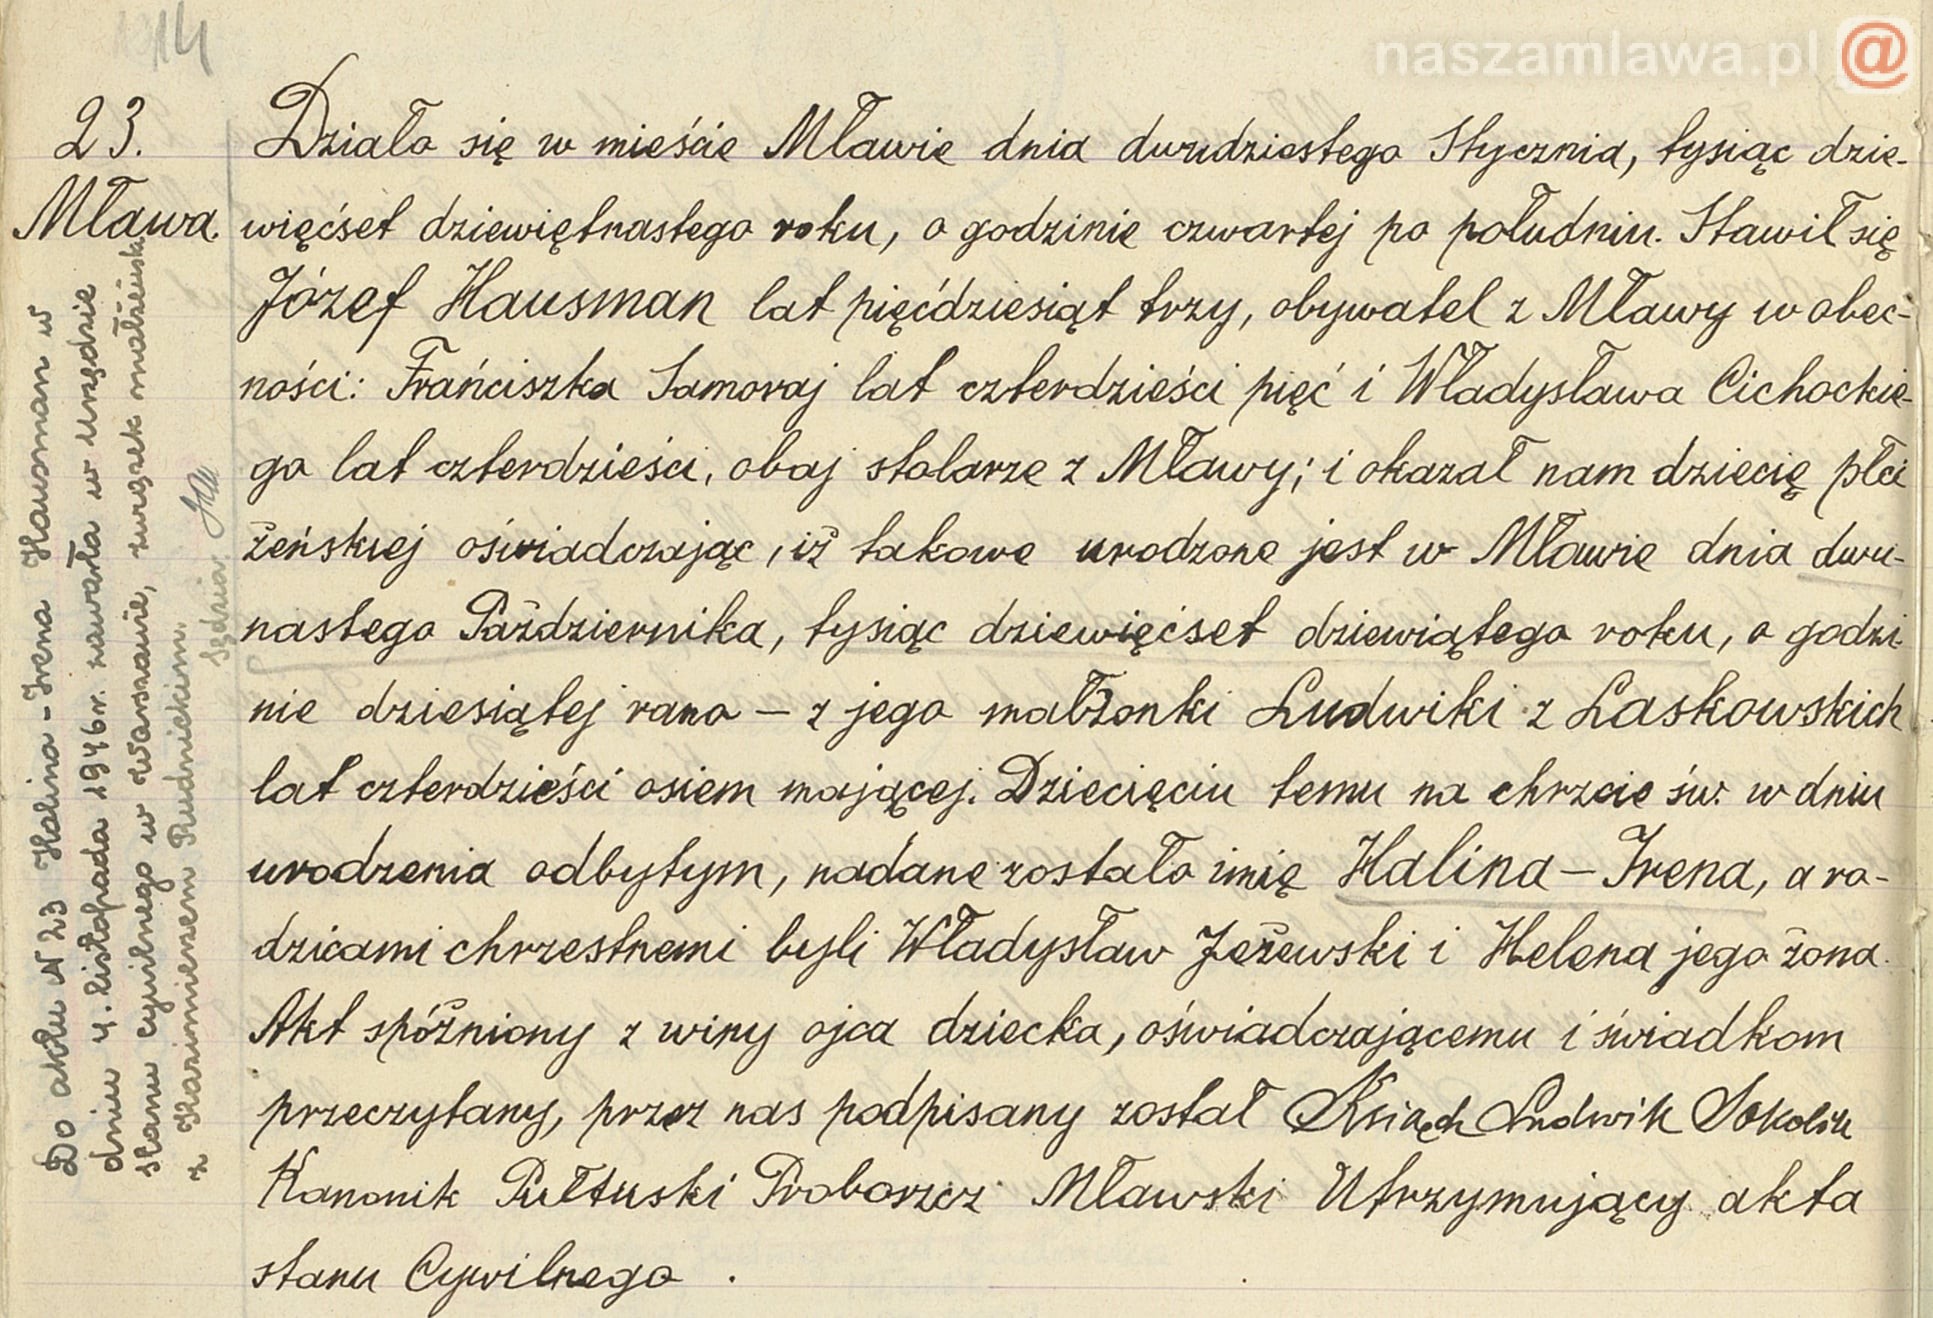 naszamlawa.pl @
14
23.
Mława.
Działo się w mieście Mławie dnia dwudziestego Stycznia, tysiąc dzie-
więćset dziewiętnastego roku, o godzinie czwartej po południu. Stawił się
Józef Hausman lat pięćdziesiąt trzy, obywatel z Mławy w obec-
ności: Frańciszka Samoraj lat czterdzieści pięć i Władysława Cichockie-
go lat czterdzieści, obaj stolarze z Mławy; i okazał nam dziecię płci
żeńskiej oświadczając, iż takowe urodzone jest w Mławie dnia dwu-
nastego Października, tysiąc dziewięćset dziewiątego roku, o godzi-
nie dziesiątej rano – z jego małżonki Ludwiki z Laskowskich
lat czterdzieści osiem mającej. Dziecięciu temu na chrzcie św. w dniu
urodzenia odbytym, nadane zostało imię Halina – Irena, a ro-
dzicami chrzestnemi byli Władysław Jeżewski i Helena jego żona.
Akt spóźniony z winy ojca dziecka, oświadczającemu i świadkom
przeczytany, przez nas podpisany został Ksiądz Ludwik
Kanonik Pułtuski Proboszcz Mławski Utrzymujący akta
stanu Cywilnego.
Do aktu N 23 Halina-Irena Hausman w
dniu 4. listopada 1946 r. zawarła w Urzędzie
stanu cywilnego w Warszawie, związek małżeński
z Kazimierzem Rudnickim.
Sędzia